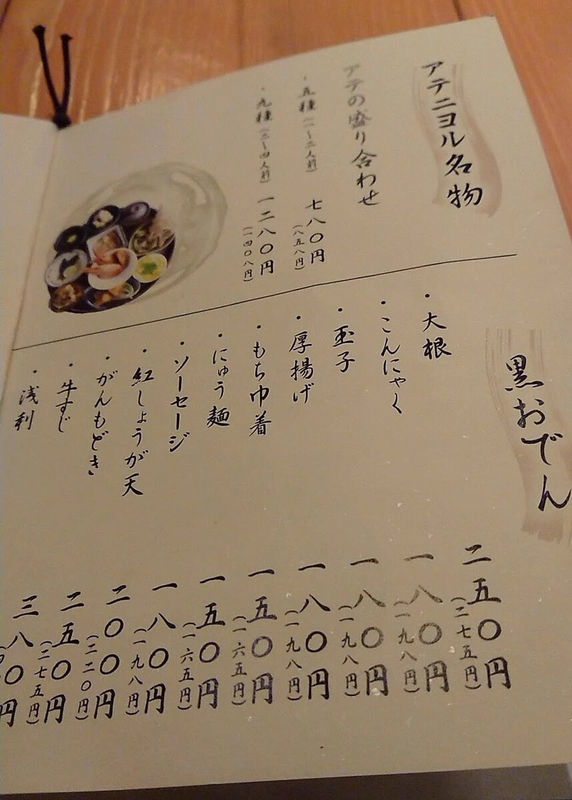 アテニヨル名物
アテの盛り合わせ
・五種(一〜二人前) 七八〇円
(八五八円)
・九種(三〜四人前) 一二八〇円
(一四〇八円)
黒おでん
・大根
・こんにゃく
・玉子
・厚揚げ
・もち巾着
・にゅう麺
・ソーセージ
・紅しょうが天
・がんもどき
・牛すじ
・浅利
二五〇円
(二七五円)
一八〇円
(一九八円)
一八〇円
(一九八円)
一八〇円
(一九八円)
一五〇円
(一六五円)
一五〇円
(一六五円)
一八〇円
(一九八円)
二〇〇円
(二二〇円)
二五〇円
(二七五円)
三八〇円